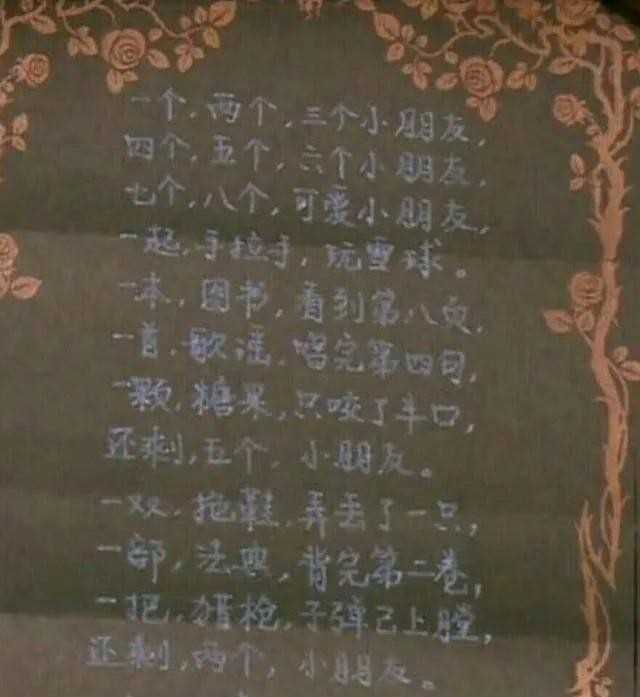 一个,两个,三个小朋友,
四个,五个,六个小朋友,
七个,八个,可爱小朋友,
一起,手拉手,玩雪球。
一本,图书,看到第八页,
一首,歌谣,唱完第四句,
一颗,糖果,只咬了半口,
还剩,五个,小朋友。
一双,拖鞋,弄丢了一只,
一部,法典,背完第二卷,
一把,猎枪,子弹已上膛,
还剩,两个,小朋友。